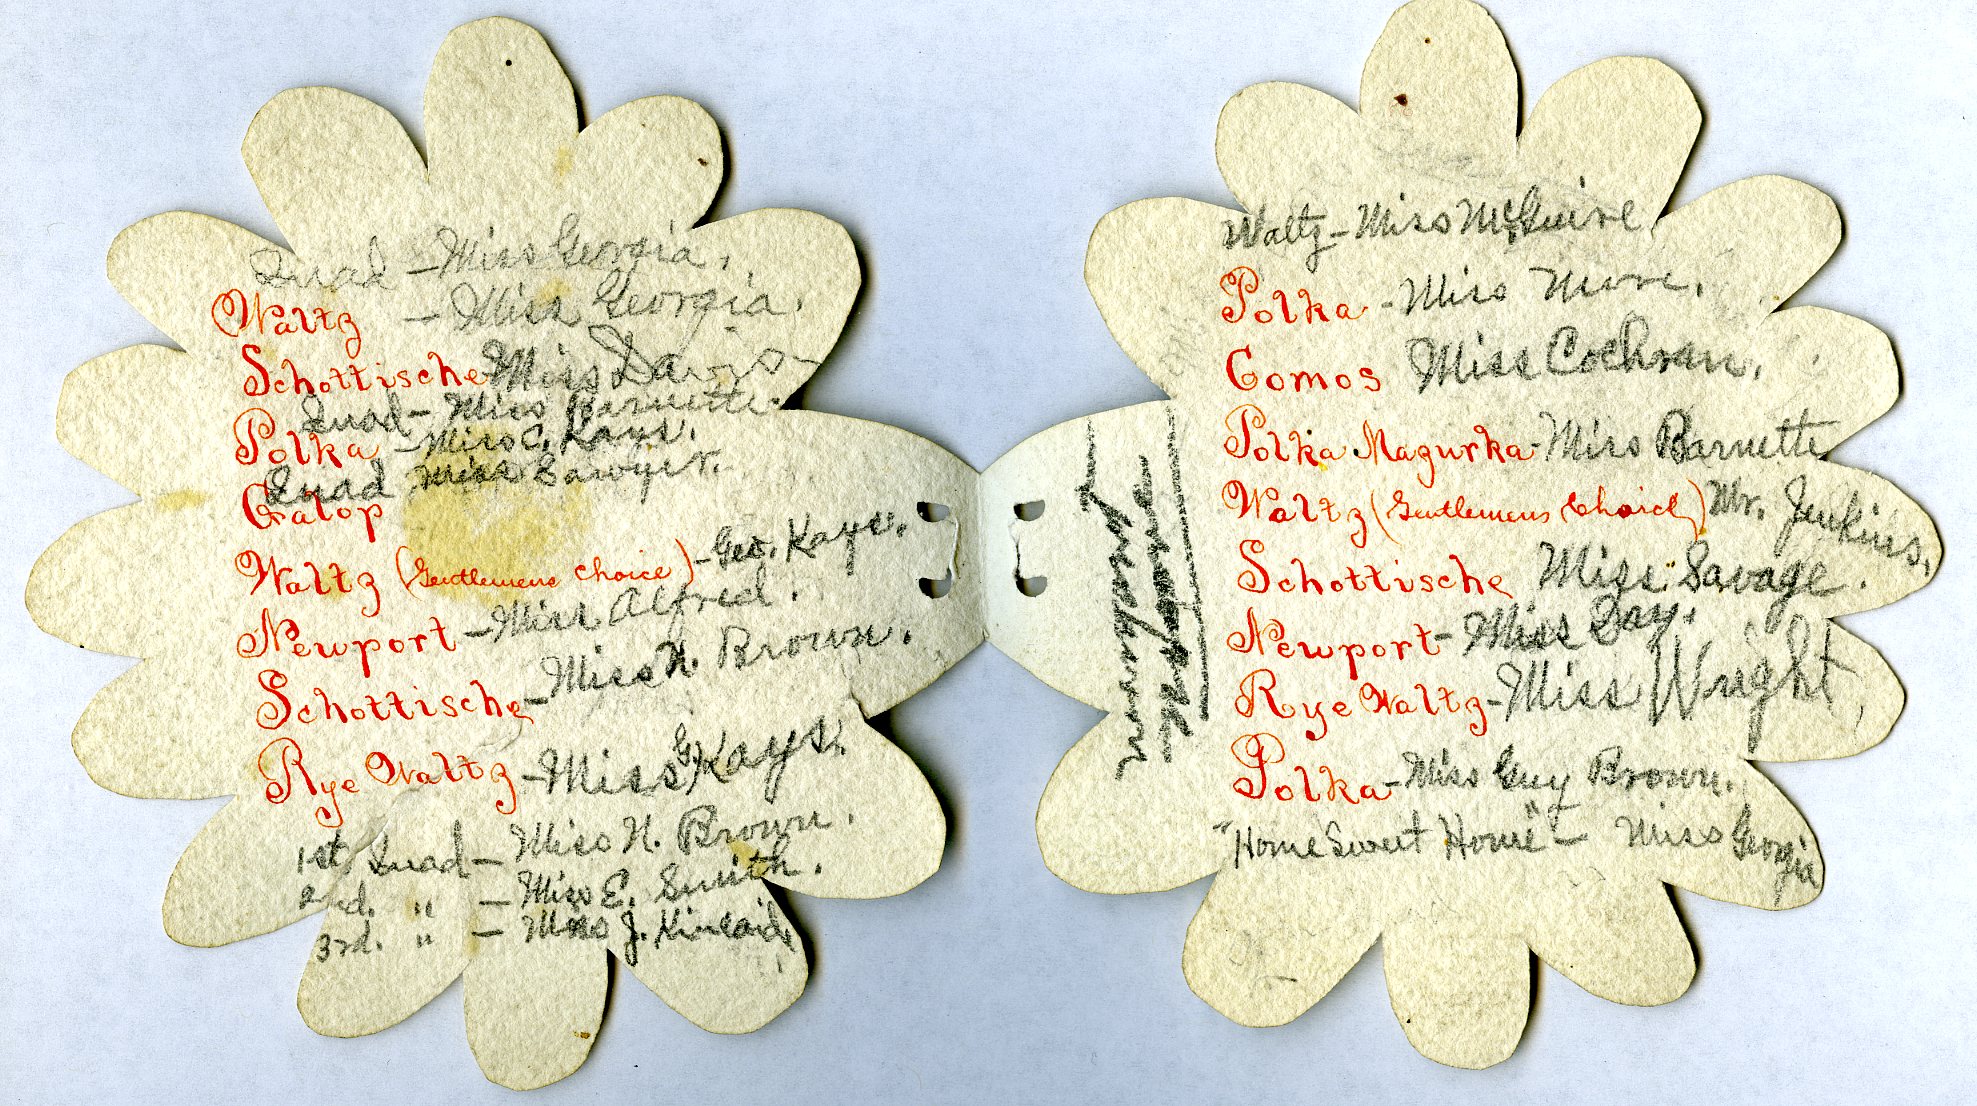 Quad - Miss Georgia.
Waltz - Miss Georgia.
Schottische Miss Davis
Quad - Miss Barnette.
Polka - Miss C. Kays.
Quad Miss Sawyer.
Galop
Waltz (Gentlemens choice) - Geo. Kays.
Newport - Miss Alfred.
Schottische - Miss N. Brown.
Rye Waltz - Miss G. Kays.
1st Quad - Miss N. Brown.
2nd. " - Miss E. Smith.
3rd. " - Miss J. Kincaid.
Waltz - Miss McGuire
Polka - Miss More.
Comos Miss Cochran.
Polka Mazurka - Miss Barnette
Waltz (Gentlemens Choice) Mr. Jenkins.
Schottische Miss Savage.
Newport - Miss Day.
Rye Waltz - Miss Wright
Polka - Miss Guy Brown.
"Home Sweet Home" - Miss Georgia